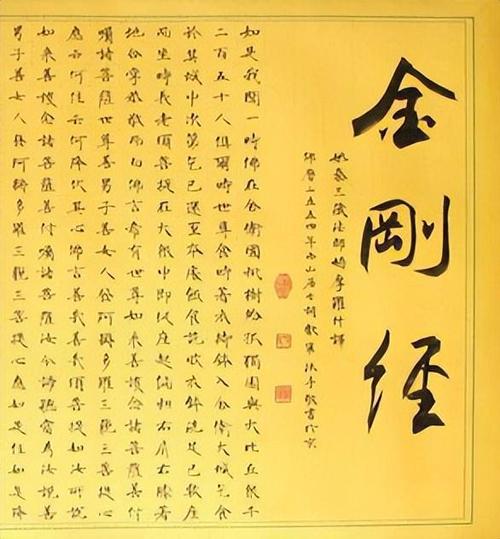 金剛經
姚秦三藏法師鳩摩羅什譯
佛曆二五五四年西山居士胡沐手敬書於京
如是我聞一時佛在舍衛國祇樹給孤獨園與大比丘眾千
二百五十人俱爾時世尊食時著衣持鉢入舍衛大城乞食
於其城中次第乞已還至本處飯食訖收衣鉢洗足已敷座
而坐時長老須菩提在大眾中即從座起偏袒右肩右膝著
地合掌恭敬而白佛言希有世尊如來善護念諸菩薩善付
囑諸菩薩世尊善男子善女人發阿耨多羅三藐三菩提心
應云何住云何降伏其心佛言善哉善哉須菩提如汝所說
如來善護念諸菩薩善付囑諸菩薩汝今諦聽當為汝說善
男子善女人發阿耨多羅三藐三菩提心應如是住如是降